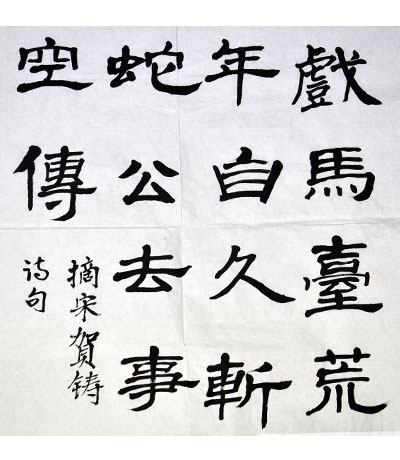 戲馬臺荒
年白久斬
蛇公去事
空傳
摘宋賀铸
诗句